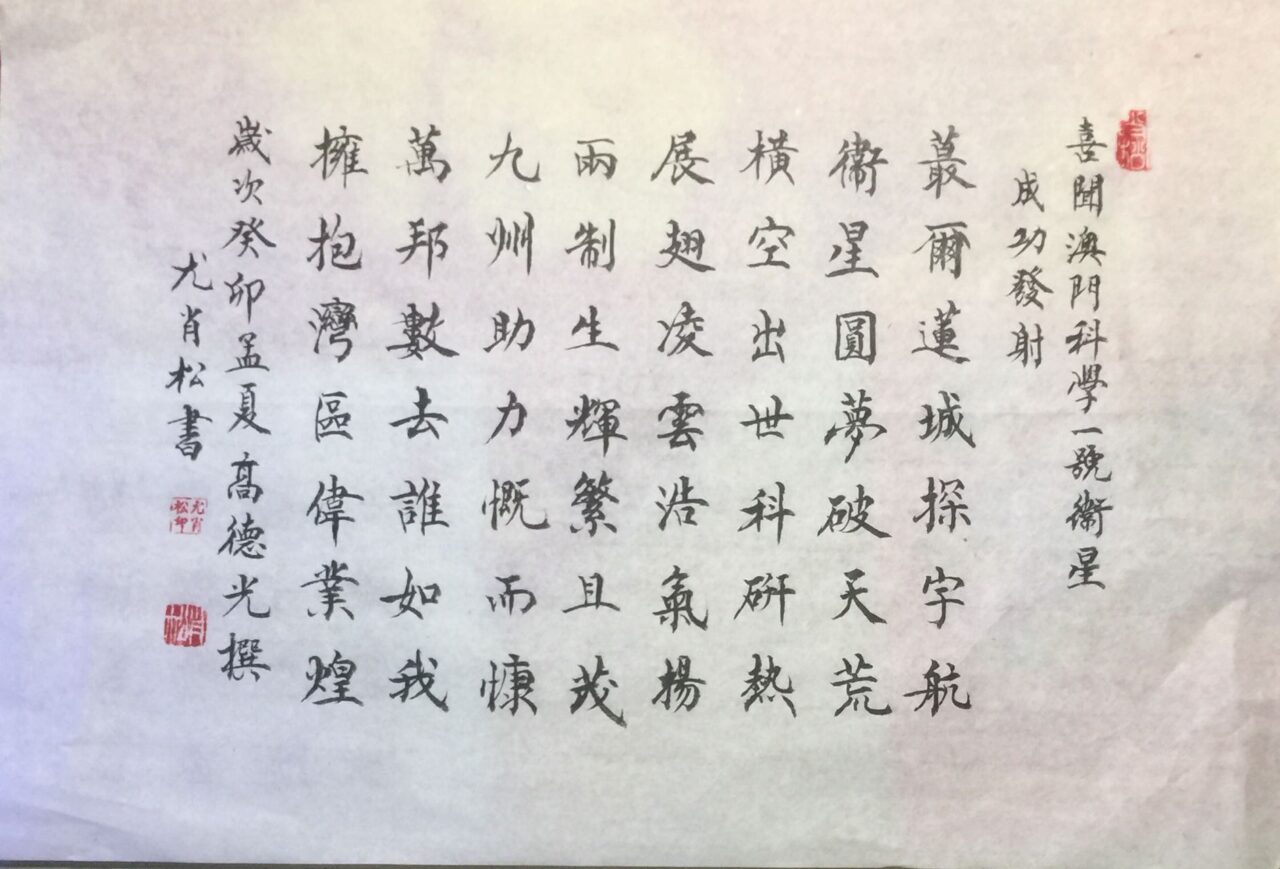 喜聞澳門科學一號衞星
成功發射
蕞爾蓮城探宇航
衞星圓夢破天荒
橫空出世科研熱
展翅凌雲浩氣揚
兩制生輝繁且茂
九州助力慨而慷
萬邦數去誰如我
擁抱灣區偉業煌
歲次癸卯孟夏高德光撰
尤肖松書
尤肖松印